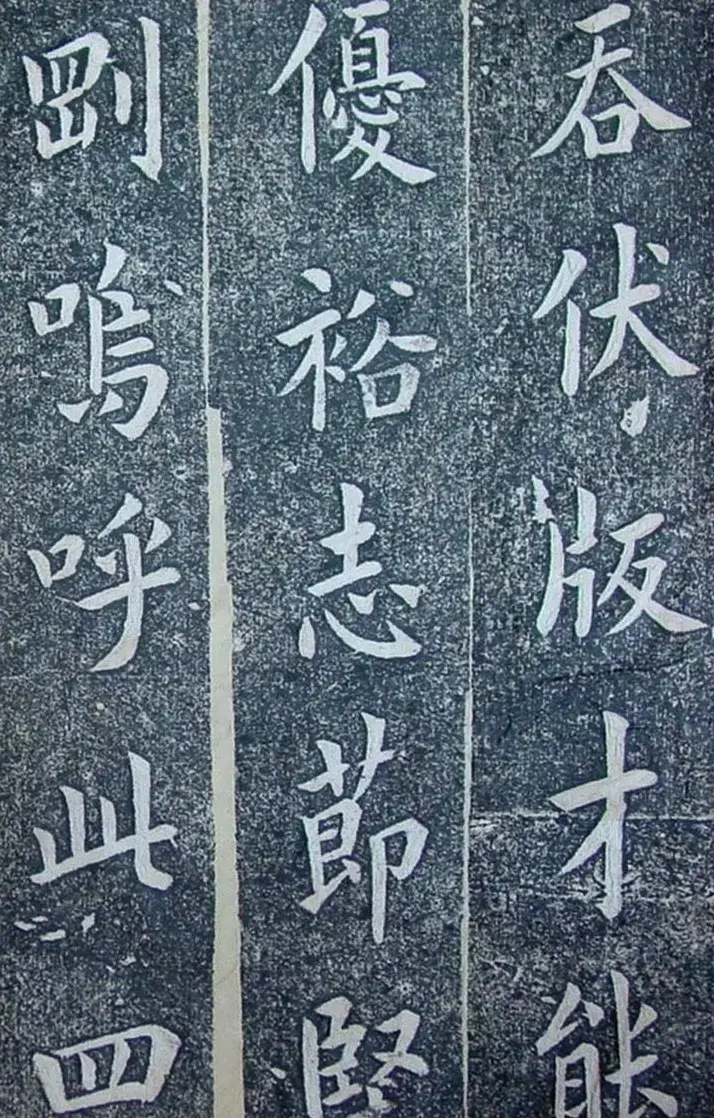 吞伏版才能
優裕志節堅
剛嗚呼此四